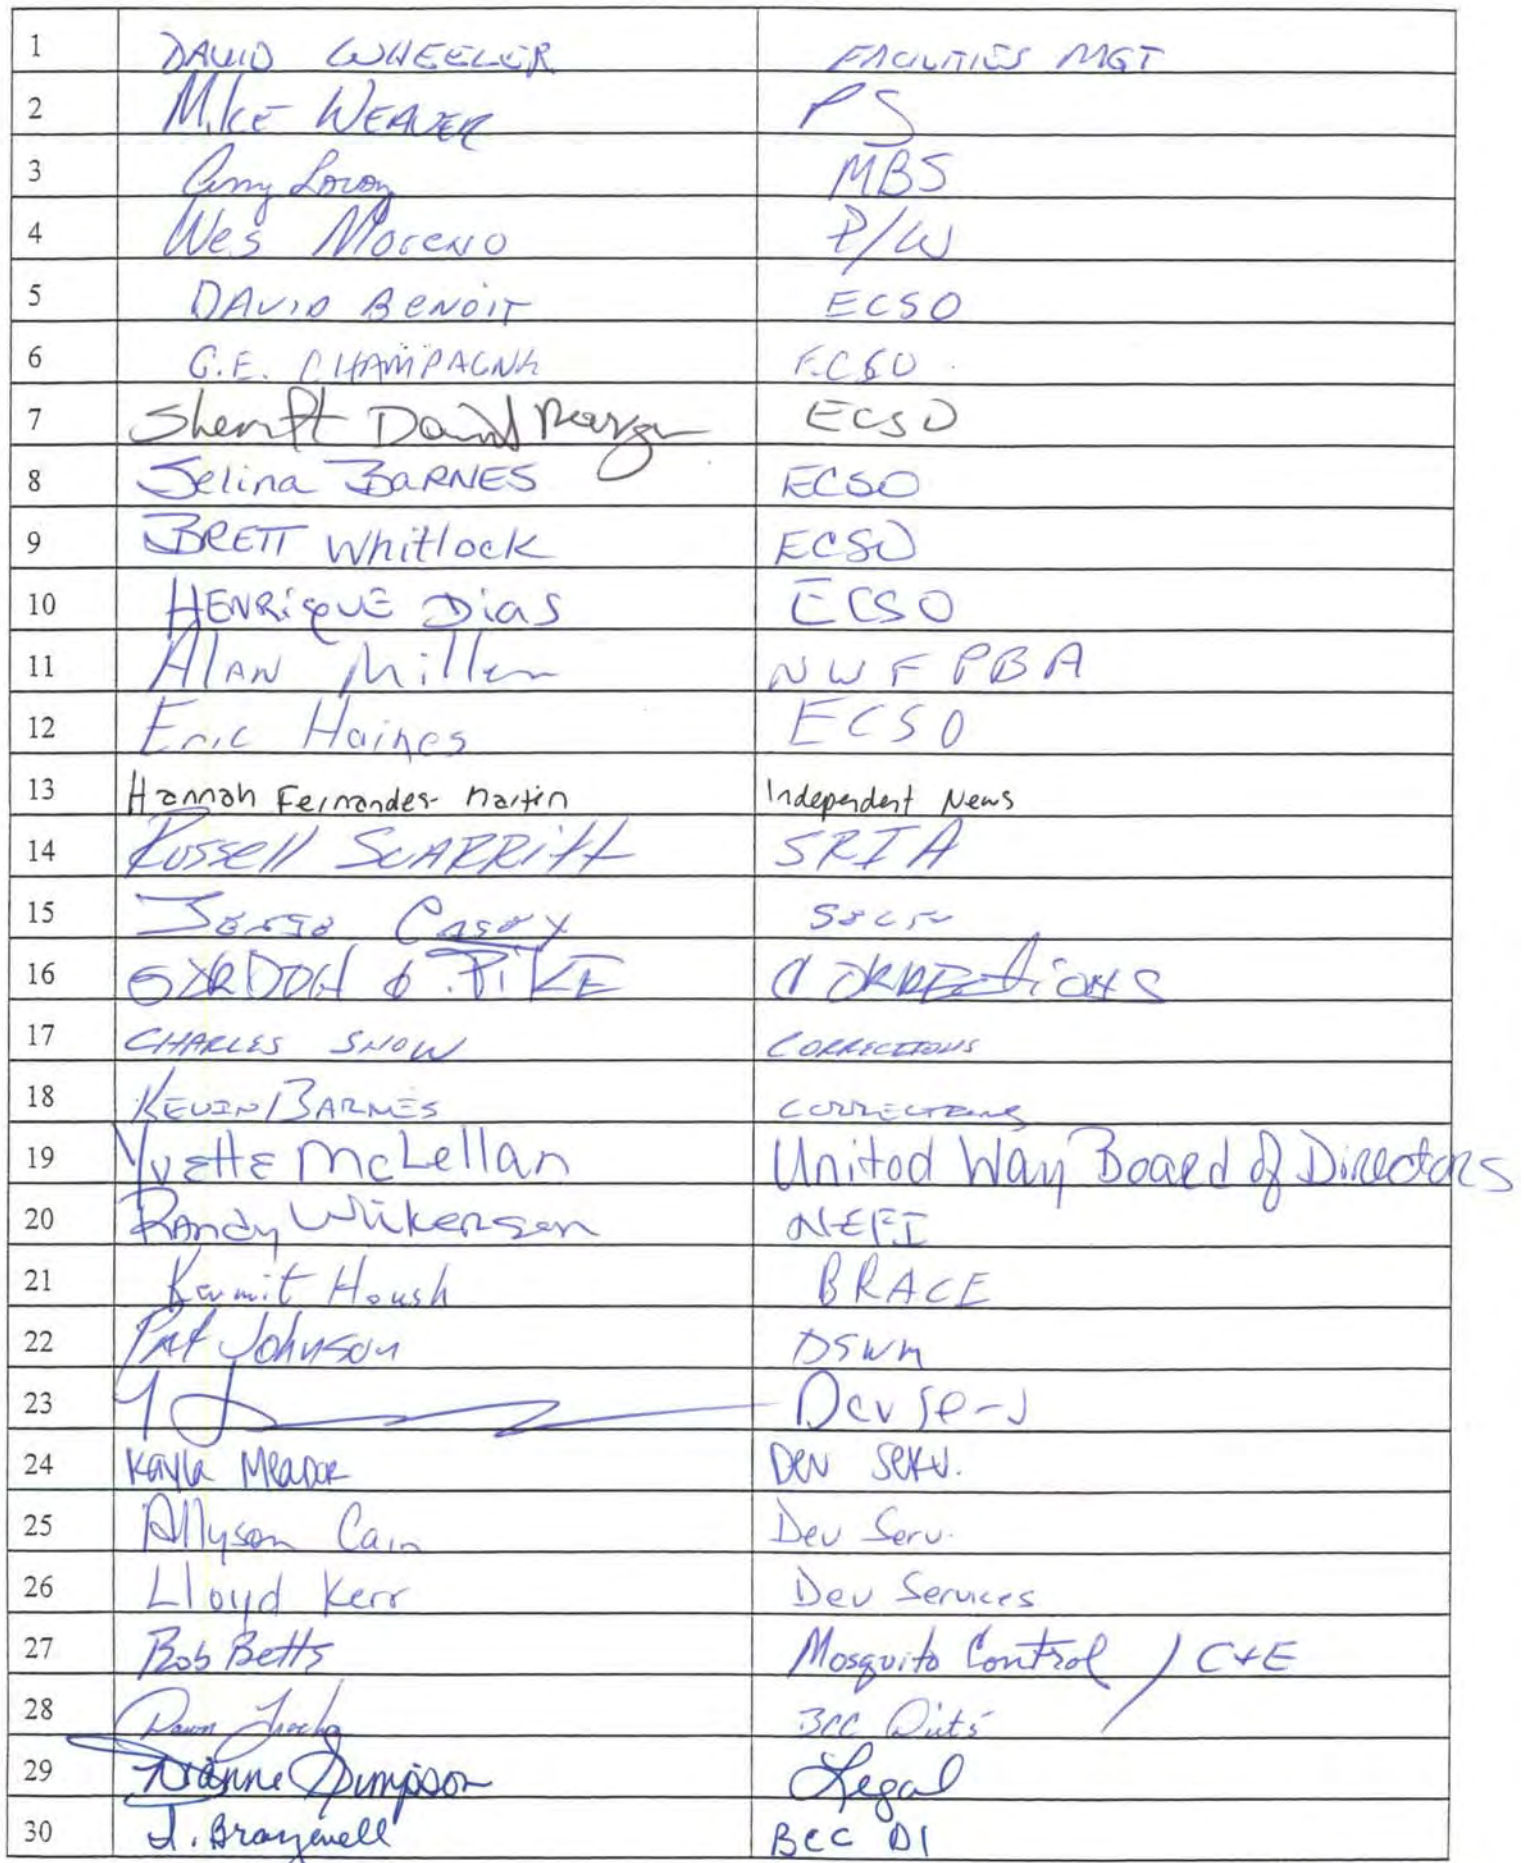 1 DAVID WHEELER FACILITIES MGT
2 MIKE WEAVER PS
3 Amy MBS
4 Wes Moreno P/W
5 DAVID BENOIT ECSO
6 G.E. CHAMPAGNE ECSO
7 Sheriff David Morgan ECSO
8 Selina BARNES ECSO
9 BRETT Whitlock ECSO
10 HENRIQUE Dias ECSO
11 ALAN Miller NWF PBA
12 Eric Haines ECSO
13 Hannah Fernandes-Martin Independent News
14 Russell SCARRITT SRIA
15 Casey
16 GORDON C. PIKE CORRECTIONS
17 CHARLES SNOW CORRECTIONS
18 KEVIN BARNES CORRECTIONS
19 YVETTE McLellan United Way Board of Directors
20 RANDY Wilkerson NEFI
21 Kermit Housh BRACE
22 PAT Johnson DSWM
23 Dev
24 Kayla Meador Dev Serv.
25 Allyson Cain Dev Serv.
26 Lloyd Kerr Dev Services
27 Bob Betts Mosquito Control / C+E
28 Dawn BCC
29 Dianne Simpson Legal
30 J. BCC D1